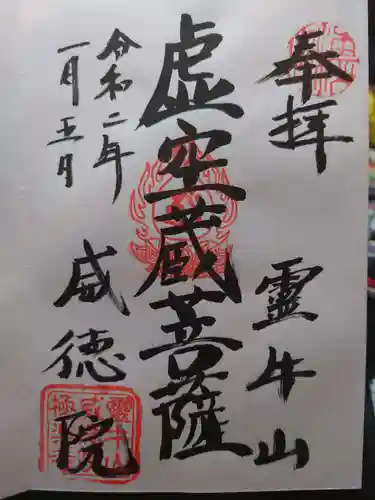 奉拝
霊牛山
虚空蔵菩薩
令和二年
一月五日
威徳院